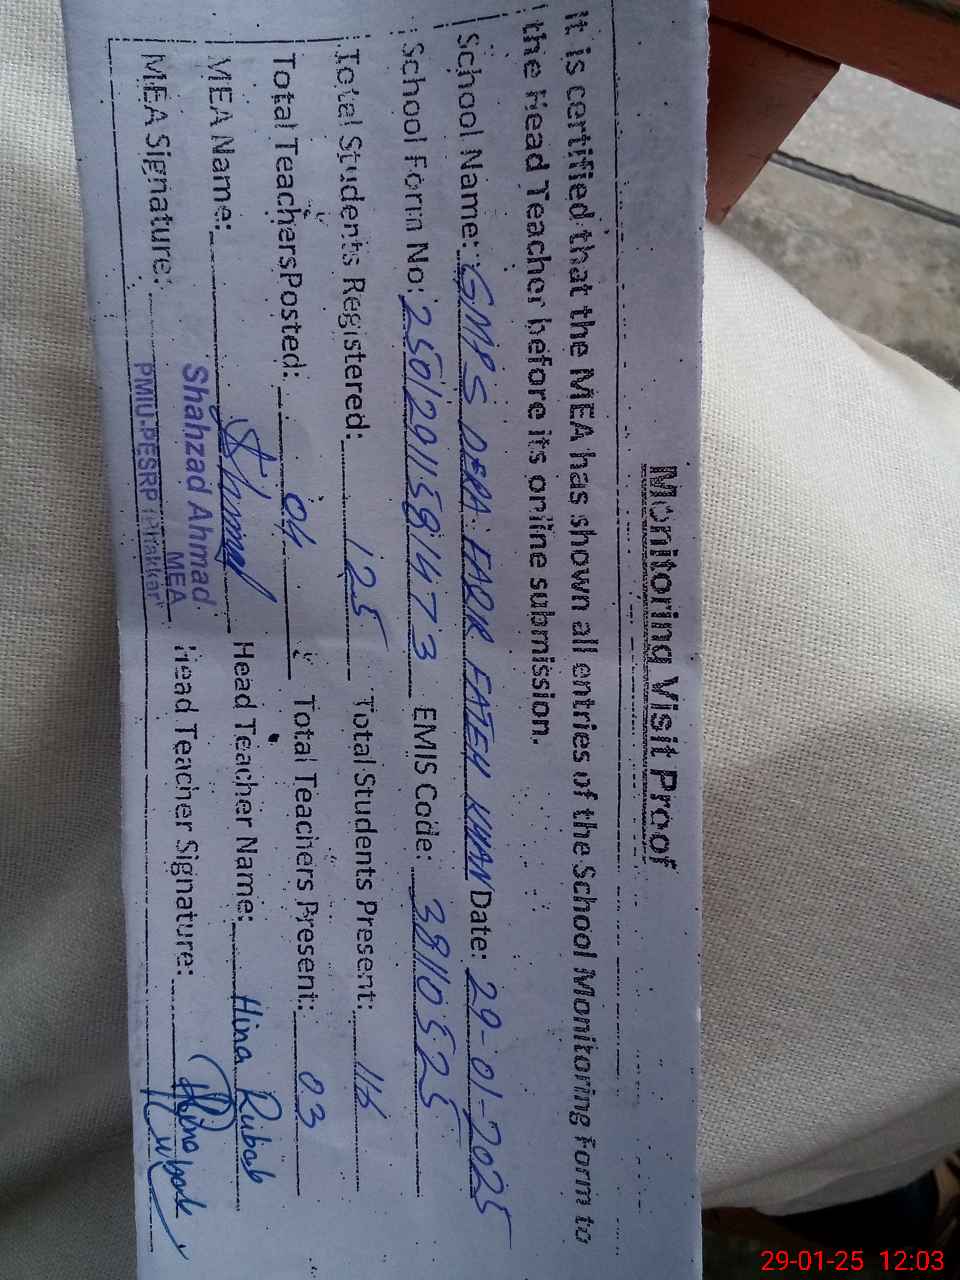 Monitoring Visit Proof
It is certified that the MEA has shown all entries of the School Monitoring Form to
the Head Teacher before its online submission.
School Name: GMPS DERA FAQIR FATEH KHAN Date: 29-01-2025
School Form No: 250129115814473 EMIS Code: 38110525
Total Students Registered: 125 Total Students Present: 116
Total Teachers Posted: 04 Total Teachers Present: 03
MEA Name: Head Teacher Name: Hina Rubab
MEA Signature: Head Teacher Signature: Hina Rubab
Shahzad Ahmad
MEA
PMIU-PESRP
29-01-25 12:03